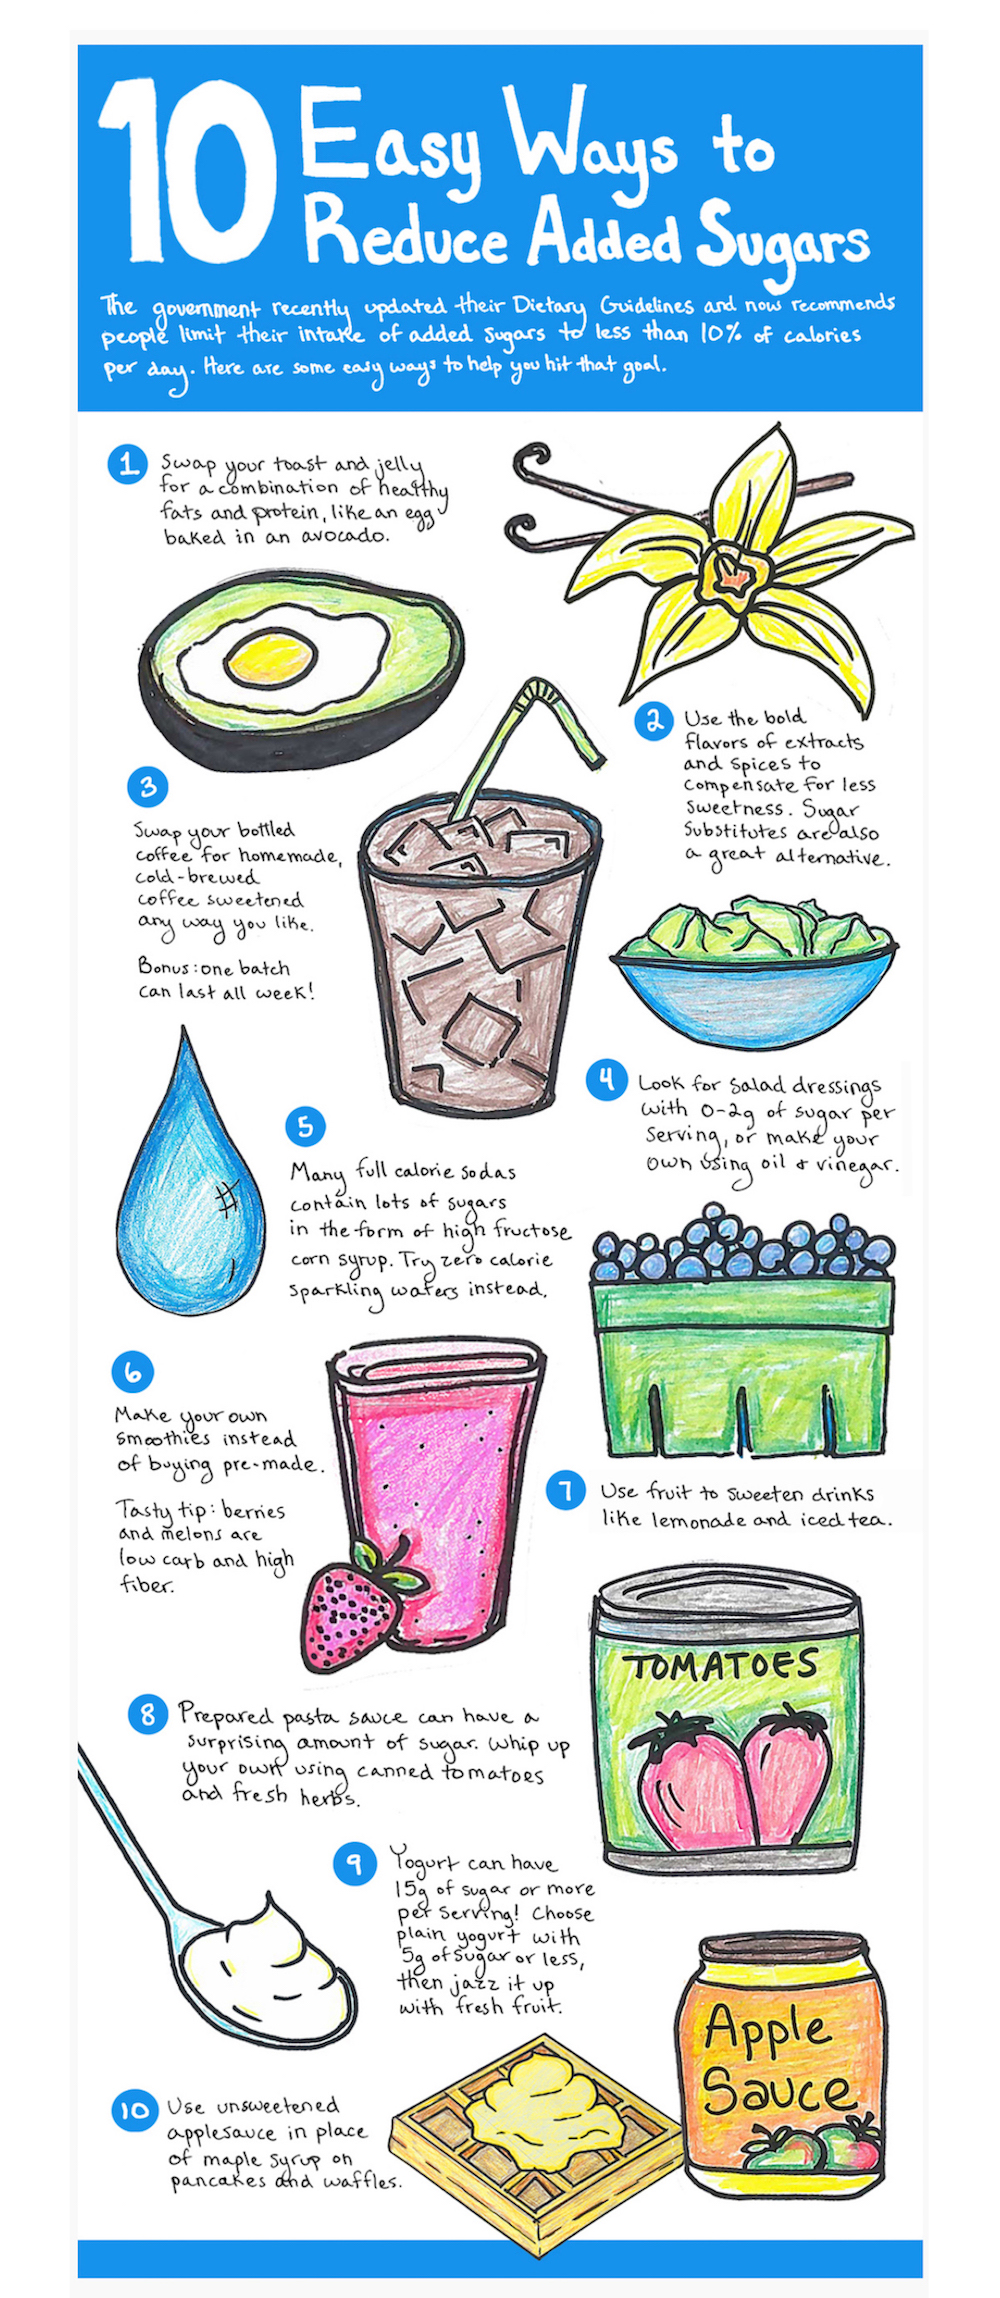 10 Easy Ways to
Reduce Added Sugars
The government recently updated their Dietary Guidelines and now recommends
people limit their intake of added sugars to less than 10% of calories
per day. Here are some easy ways to help you hit that goal.
1 Swap your toast and jelly
for a combination of healthy
fats and protein, like an egg
baked in an avocado.
2 Use the bold
flavors of extracts
and spices to
compensate for less
sweetness. Sugar
Substitutes are also
a great alternative.
3
Swap your bottled
coffee for homemade,
cold-brewed
coffee sweetened
any way you like.
Bonus: one batch
can last all week!
4 Look for salad dressings
with 0-2g of sugar per
serving, or make your
own using oil & vinegar.
5
Many full calorie sodas
contain lots of sugars
in the form of high fructose
corn syrup. Try zero calorie
sparkling waters instead.
6
Make your own
smoothies instead
of buying pre-made.
Tasty tip: berries
and melons are
low carb and high
fiber.
7 Use fruit to sweeten drinks
like lemonade and iced tea.
TOMATOES
8 Prepared pasta sauce can have a
surprising amount of sugar. Whip up
your own using canned tomatoes
and fresh herbs.
9 Yogurt can have
15g of sugar or more
per serving! Choose
plain yogurt with
5g of sugar or less,
then jazz it up
with fresh fruit.
Apple
Sauce
10 Use unsweetened
applesauce in place
of maple syrup on
pancakes and waffles.